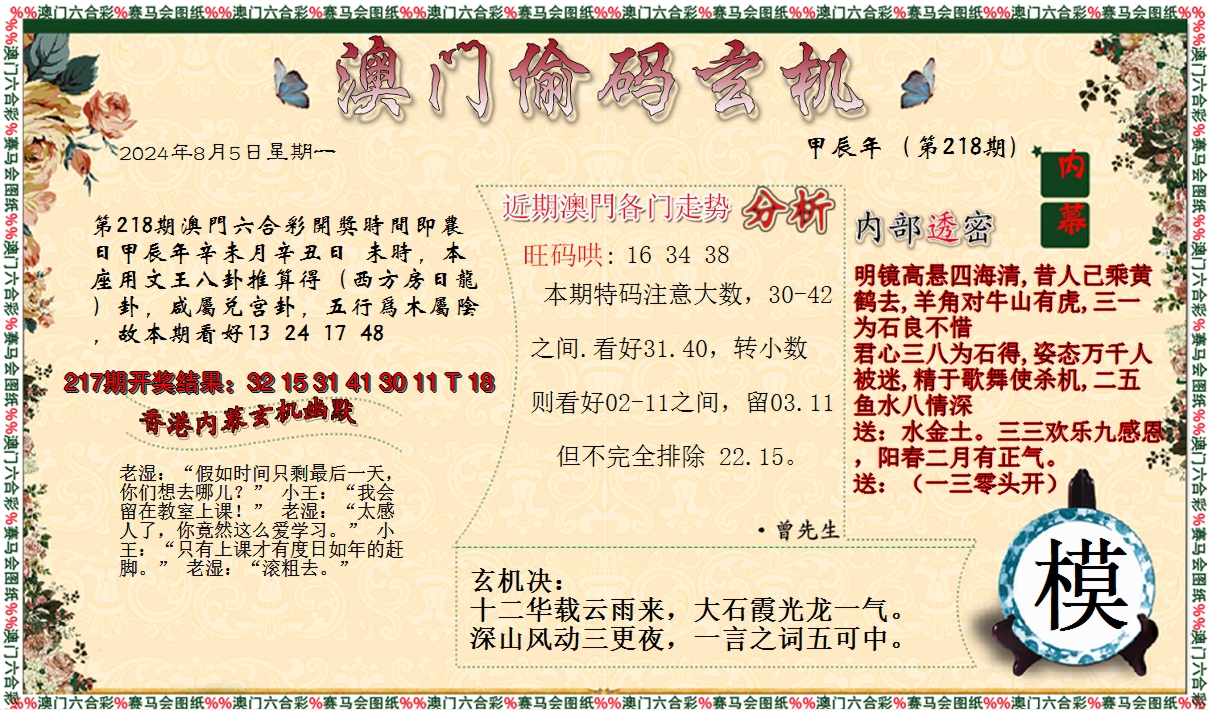 %%澳门六合彩%赛马会图纸%%澳门六合彩%赛马会图纸%%澳门六合彩%赛马会图纸%%澳门六合彩%赛马会图纸%%澳门六合彩%赛马会图纸%%澳门六合彩%赛马会图纸%%
澳门偷码玄机
2024年8月5日星期一
甲辰年（第218期）
第218期澳門六合彩開獎時間即農
日甲辰年辛未月辛丑日 未時，本
座用文王八卦推算得（西方房日龍
）卦，咸屬兑宫卦，五行爲木屬陰
，故本期看好13 24 17 48
217期开奖结果：32 15 31 41 30 11 T 18
香港内幕玄机幽默
老湿：“假如时间只剩最后一天，
你们想去哪儿？” 小王：“我会
留在教室上课！” 老湿：“太感
人了，你竟然这么爱学习。” 小
王：“只有上课才有度日如年的赶
脚。” 老湿：“滚粗去。”
近期澳門各门走势 分析
旺码哄: 16 34 38
本期特码注意大数，30-42
之间.看好31.40，转小数
则看好02-11之间，留03.11
但不完全排除 22.15。
·曾先生
内幕
内部透密
明镜高悬四海清,昔人已乘黄
鹤去,羊角对牛山有虎,三一
为石良不惜
君心三八为石得,姿态万千人
被迷,精于歌舞使杀机,二五
鱼水八情深
送：水金土。三三欢乐九感恩
，阳春二月有正气。
送：（一三零头开）
玄机决：
十二华载云雨来，大石霞光龙一气。
深山风动三更夜，一言之词五可中。
模
%%澳门六合彩%赛马会图纸%%澳门六合彩%赛马会图纸%%澳门六合彩%赛马会图纸%%澳门六合彩%赛马会图纸%%澳门六合彩%赛马会图纸%%澳门六合彩%赛马会图纸%%